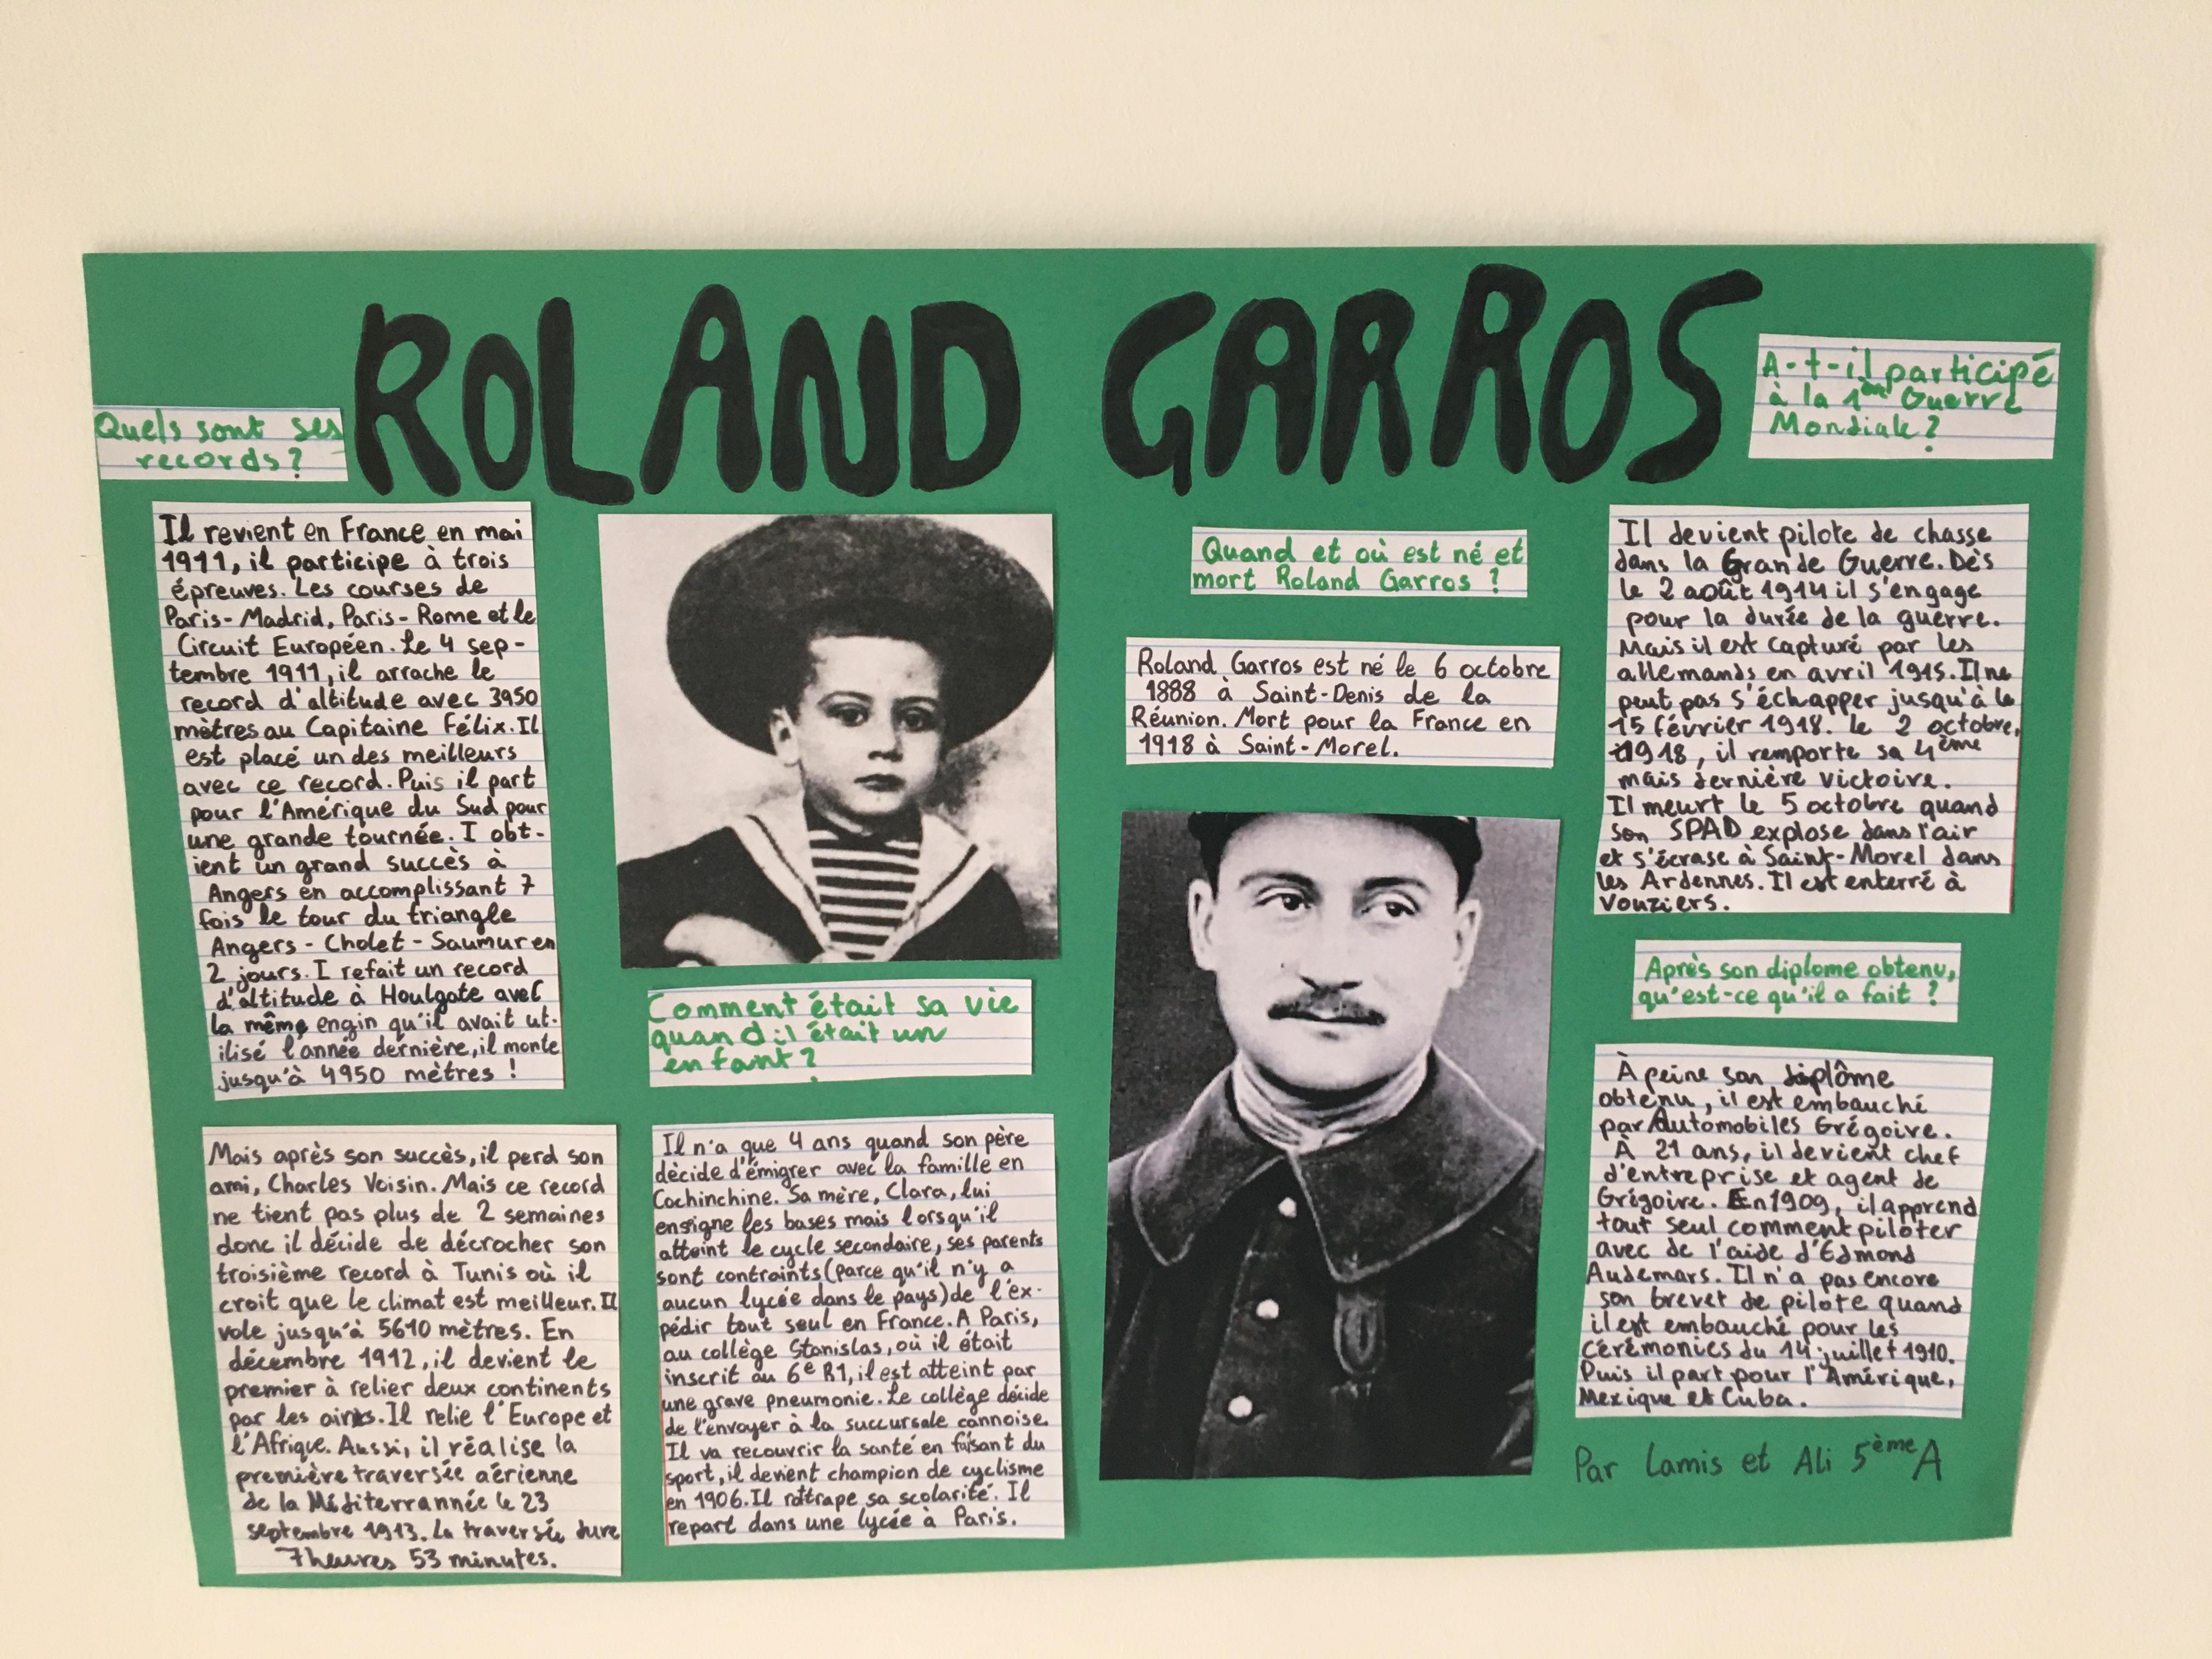 ROLAND GARROS
Quels sont ses
records?
Il revient en France en mai
1911, il participe à trois
épreuves. Les courses de
Paris-Madrid, Paris-Rome et le
Circuit Européen. Le 4 sep-
tembre 1911, il arrache le
record d'altitude avec 3950
mètres au Capitaine Félix. Il
est placé un des meilleurs
avec ce record. Puis il part
pour l'Amérique du Sud pour
une grande tournée. I obt-
ient un grand succès à
Angers en accomplissant 7
fois le tour du triangle
Angers - Cholet - Saumur en
2 jours. I refait un record
d'altitude à Houlgate avec
la même engin qu'il avait ut-
ilisé l'année dernière, il monte
jusqu'à 4950 mètres !
Mais après son succès, il perd son
ami, Charles Voisin. Mais ce record
ne tient pas plus de 2 semaines
donc il décide de décrocher son
troisième record à Tunis où il
croit que le climat est meilleur. Il
vole jusqu'à 5610 mètres. En
décembre 1912, il devient le
premier à relier deux continents
par les airs. Il relie l'Europe et
l'Afrique. Aussi, il réalise la
première traversée aérienne
de la Méditerrannée le 23
septembre 1913. La traversée dure
7 heures 53 minutes.
Comment était sa vie
quand il était un
enfant ?
Il n'a que 4 ans quand son père
décide d'émigrer avec la famille en
Cochinchine. Sa mère, Clara, lui
ensigne les bases mais lorsqu'il
atteint le cycle secondaire, ses parents
sont contraints (parce qu'il n'y a
aucun lycée dans le pays) de l'ex-
pédir tout seul en France. A Paris,
au collège Stanislas, où il était
inscrit au 6e R1, il est atteint par
une grave pneumonie. Le collège décide
de l'envoyer à la succursale cannoise.
Il va recouvrir la santé en faisant du
sport, il devient champion de cyclisme
en 1906. Il rattrape sa scolarité. Il
repart dans une lycée à Paris.
Quand et où est né et
mort Roland Garros ?
Roland Garros est né le 6 octobre
1888 à Saint-Denis de la
Réunion. Mort pour la France en
1918 à Saint-Morel.
A-t-il participé
à la 1ère Guerre
Mondiale ?
Il devient pilote de chasse
dans la Grande Guerre. Dès
le 2 août 1914 il s'engage
pour la durée de la guerre.
Mais il est capturé par les
allemands en avril 1915. Il ne
peut pas s'échapper jusqu'à le
15 février 1918. Le 2 octobre,
1918, il remporte sa 4ème
mais dernière victoire.
Il meurt le 5 octobre quand
son SPAD explose dans l'air
et s'écrase à Saint-Morel dans
les Ardennes. Il est enterré à
Vouziers.
Après son diplome obtenu,
qu'est-ce qu'il a fait ?
À peine son diplôme
obtenu, il est embauché
par Automobiles Grégoire.
À 21 ans, il devient chef
d'entreprise et agent de
Grégoire. En 1909, il apprend
tout seul comment piloter
avec de l'aide d'Edmond
Audemars. Il n'a pas encore
son brevet de pilote quand
il est embauché pour les
cérémonies du 14 juillet 1910.
Puis il part pour l'Amérique,
Mexique et Cuba.
Par Lamis et Ali 5ème A